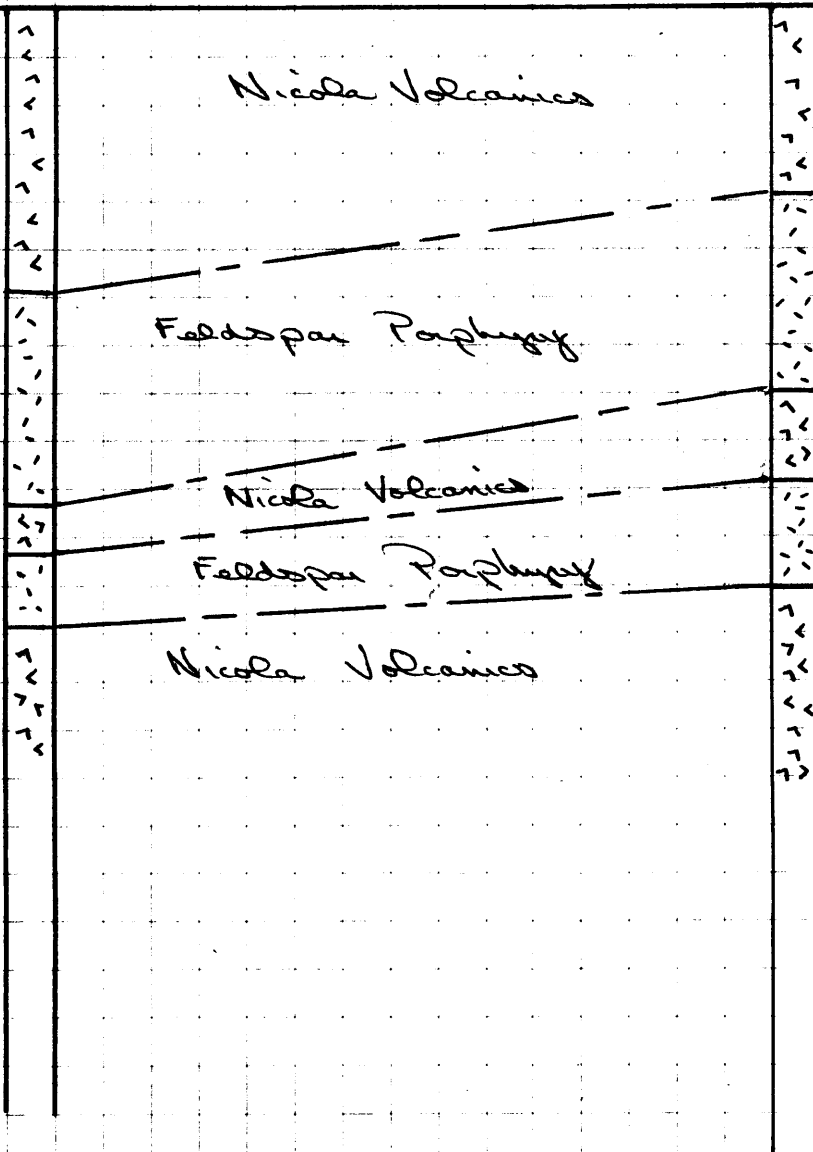 Nicola Volcanics
Feldspar Porphyry
Nicola Volcanics
Feldspar Porphyry
Nicola Volcanics